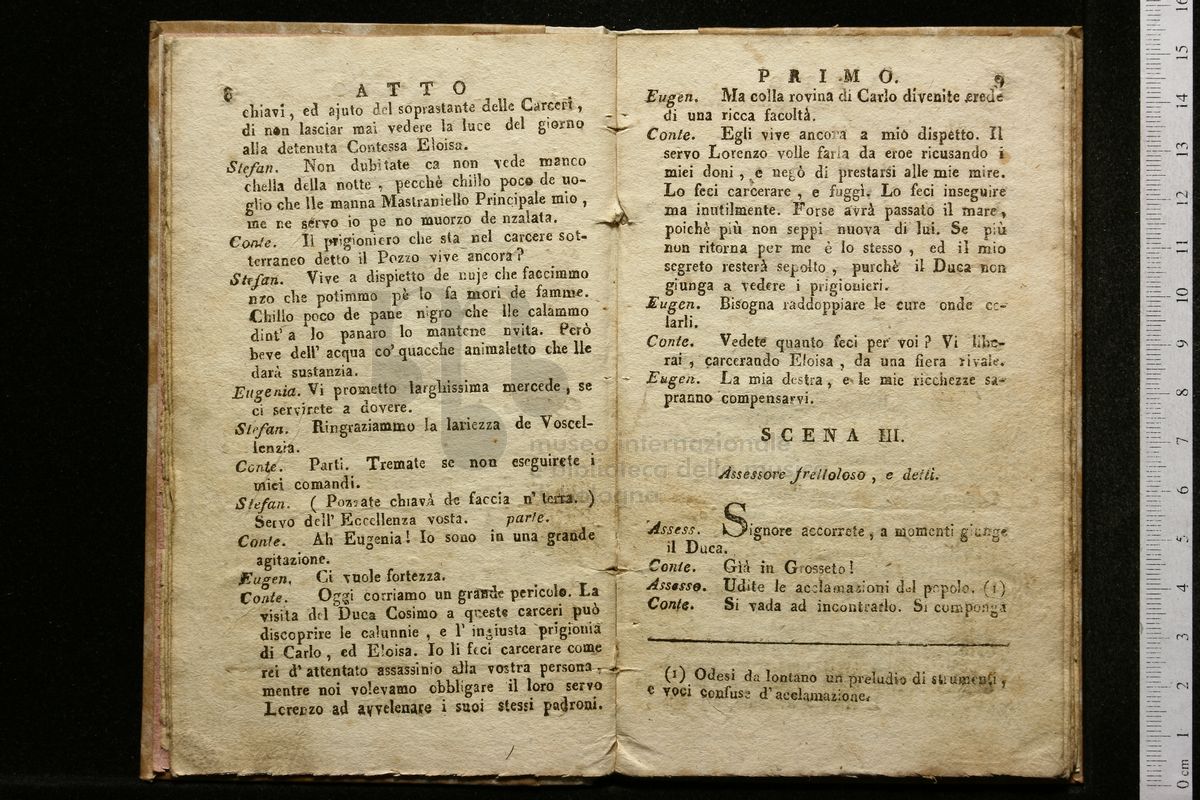 8 ATTO
chiavi, ed ajuto del soprastante delle Carceri,
di non lasciar mai vedere la luce del giorno
alla detenuta Contessa Eloisa.
Stefan. Non dubitate ca non vede manco
chella della notte, pecchè chillo poco de uo-
glio che lle manna Mastraniello Principale mio,
me ne servo io pe no muorzo de nzalata.
Conte. Il prigioniero che sta nel carcere sot-
terraneo detto il Pozzo vive ancora?
Stefan. Vive a dispietto de nuje che faccimmo
nzo che potimmo pè lo fa mori de famme.
Chillo poco de pane nigro che lle calammo
dint' a lo panaro lo mantene nvita. Però
beve dell' acqua co' quacche animaletto che lle
darà sustanzia.
Eugenia. Vi prometto larghissima mercede, se
ci servirete a dovere.
Stefan. Ringraziammo la lariezza de Voscel-
lenzia.
Conte. Parti. Tremate se non eseguirete i
miei comandi.
Stefan. ( Pozzate chiavà de faccia n' terra. )
Servo dell' Eccellenza vosta. parte.
Conte. Ah Eugenia! Io sono in una grande
agitazione.
Eugen. Ci vuole fortezza.
Conte. Oggi corriamo un grande pericolo. La
visita del Duca Cosimo a queste carceri può
discoprire le calunnie, e l' ingiusta prigionia
di Carlo, ed Eloisa. Io li feci carcerare come
rei d' attentato assassinio alla vostra persona,
mentre noi volevamo obbligare il loro servo
Lorenzo ad avvelenare i suoi stessi padroni.
PRIMO. 9
Eugen. Ma colla rovina di Carlo divenite erede
di una ricca facoltà.
Conte. Egli vive ancora a mio dispetto. Il
servo Lorenzo volle farla da eroe ricusando i
miei doni, e negò di prestarsi alle mie mire.
Lo feci carcerare, e fuggì. Lo feci inseguire
ma inutilmente. Forse avrà passato il mare,
poichè più non seppi nuova di lui. Se più
non ritorna per me è lo stesso, ed il mio
segreto resterà sepolto, purchè il Duca non
giunga a vedere i prigionieri.
Eugen. Bisogna raddoppiare le cure onde ce-
larli.
Conte. Vedete quanto feci per voi? Vi libe-
rai, carcerando Eloisa, da una fiera rivale.
Eugen. La mia destra, e le mie ricchezze sa-
pranno compensarvi.
SCENA III.
Assessore frettoloso, e detti.
Assess. Signore accorrete, a momenti giunge
il Duca.
Conte. Già in Grosseto!
Assesso. Udite le acclamazioni del popolo. (1)
Conte. Si vada ad incontrarlo. Si componga
(1) Odesi da lontano un preludio di strumenti,
e voci confuse d' acclamazione.
museo internazionale
biblioteca della
16
15
14
13
12
11
10
9
8
7
6
5
4
3
2
1
0 cm